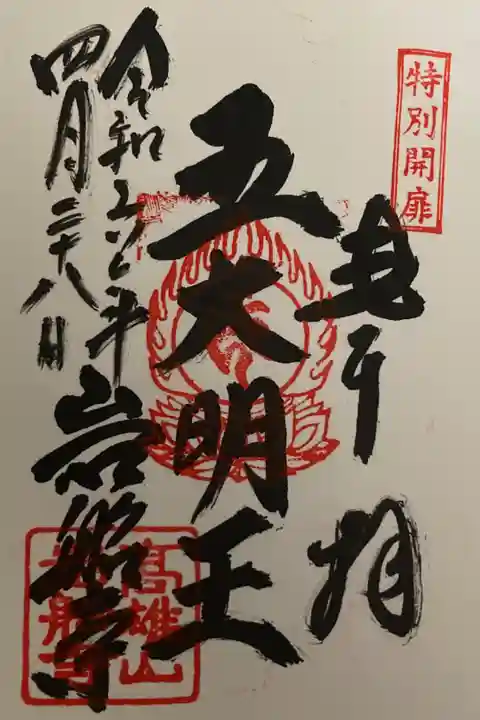 特別開扉
奉拝
五大明王
岩船寺
令和五年
四月二十八日
高雄山
岩船寺